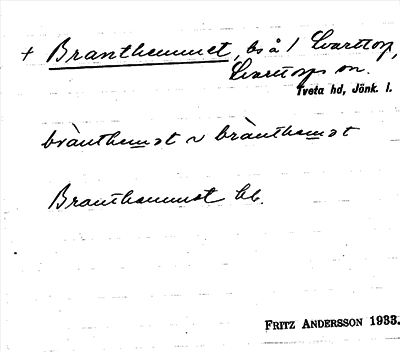 + Branthemmet, bs å 1 Svarttorp,
Svarttorps sn.
Tveta hd, Jönk. l.
brànthemət ~ brànthemət
Branthemmet bb.
FRITZ ANDERSSON 1933.